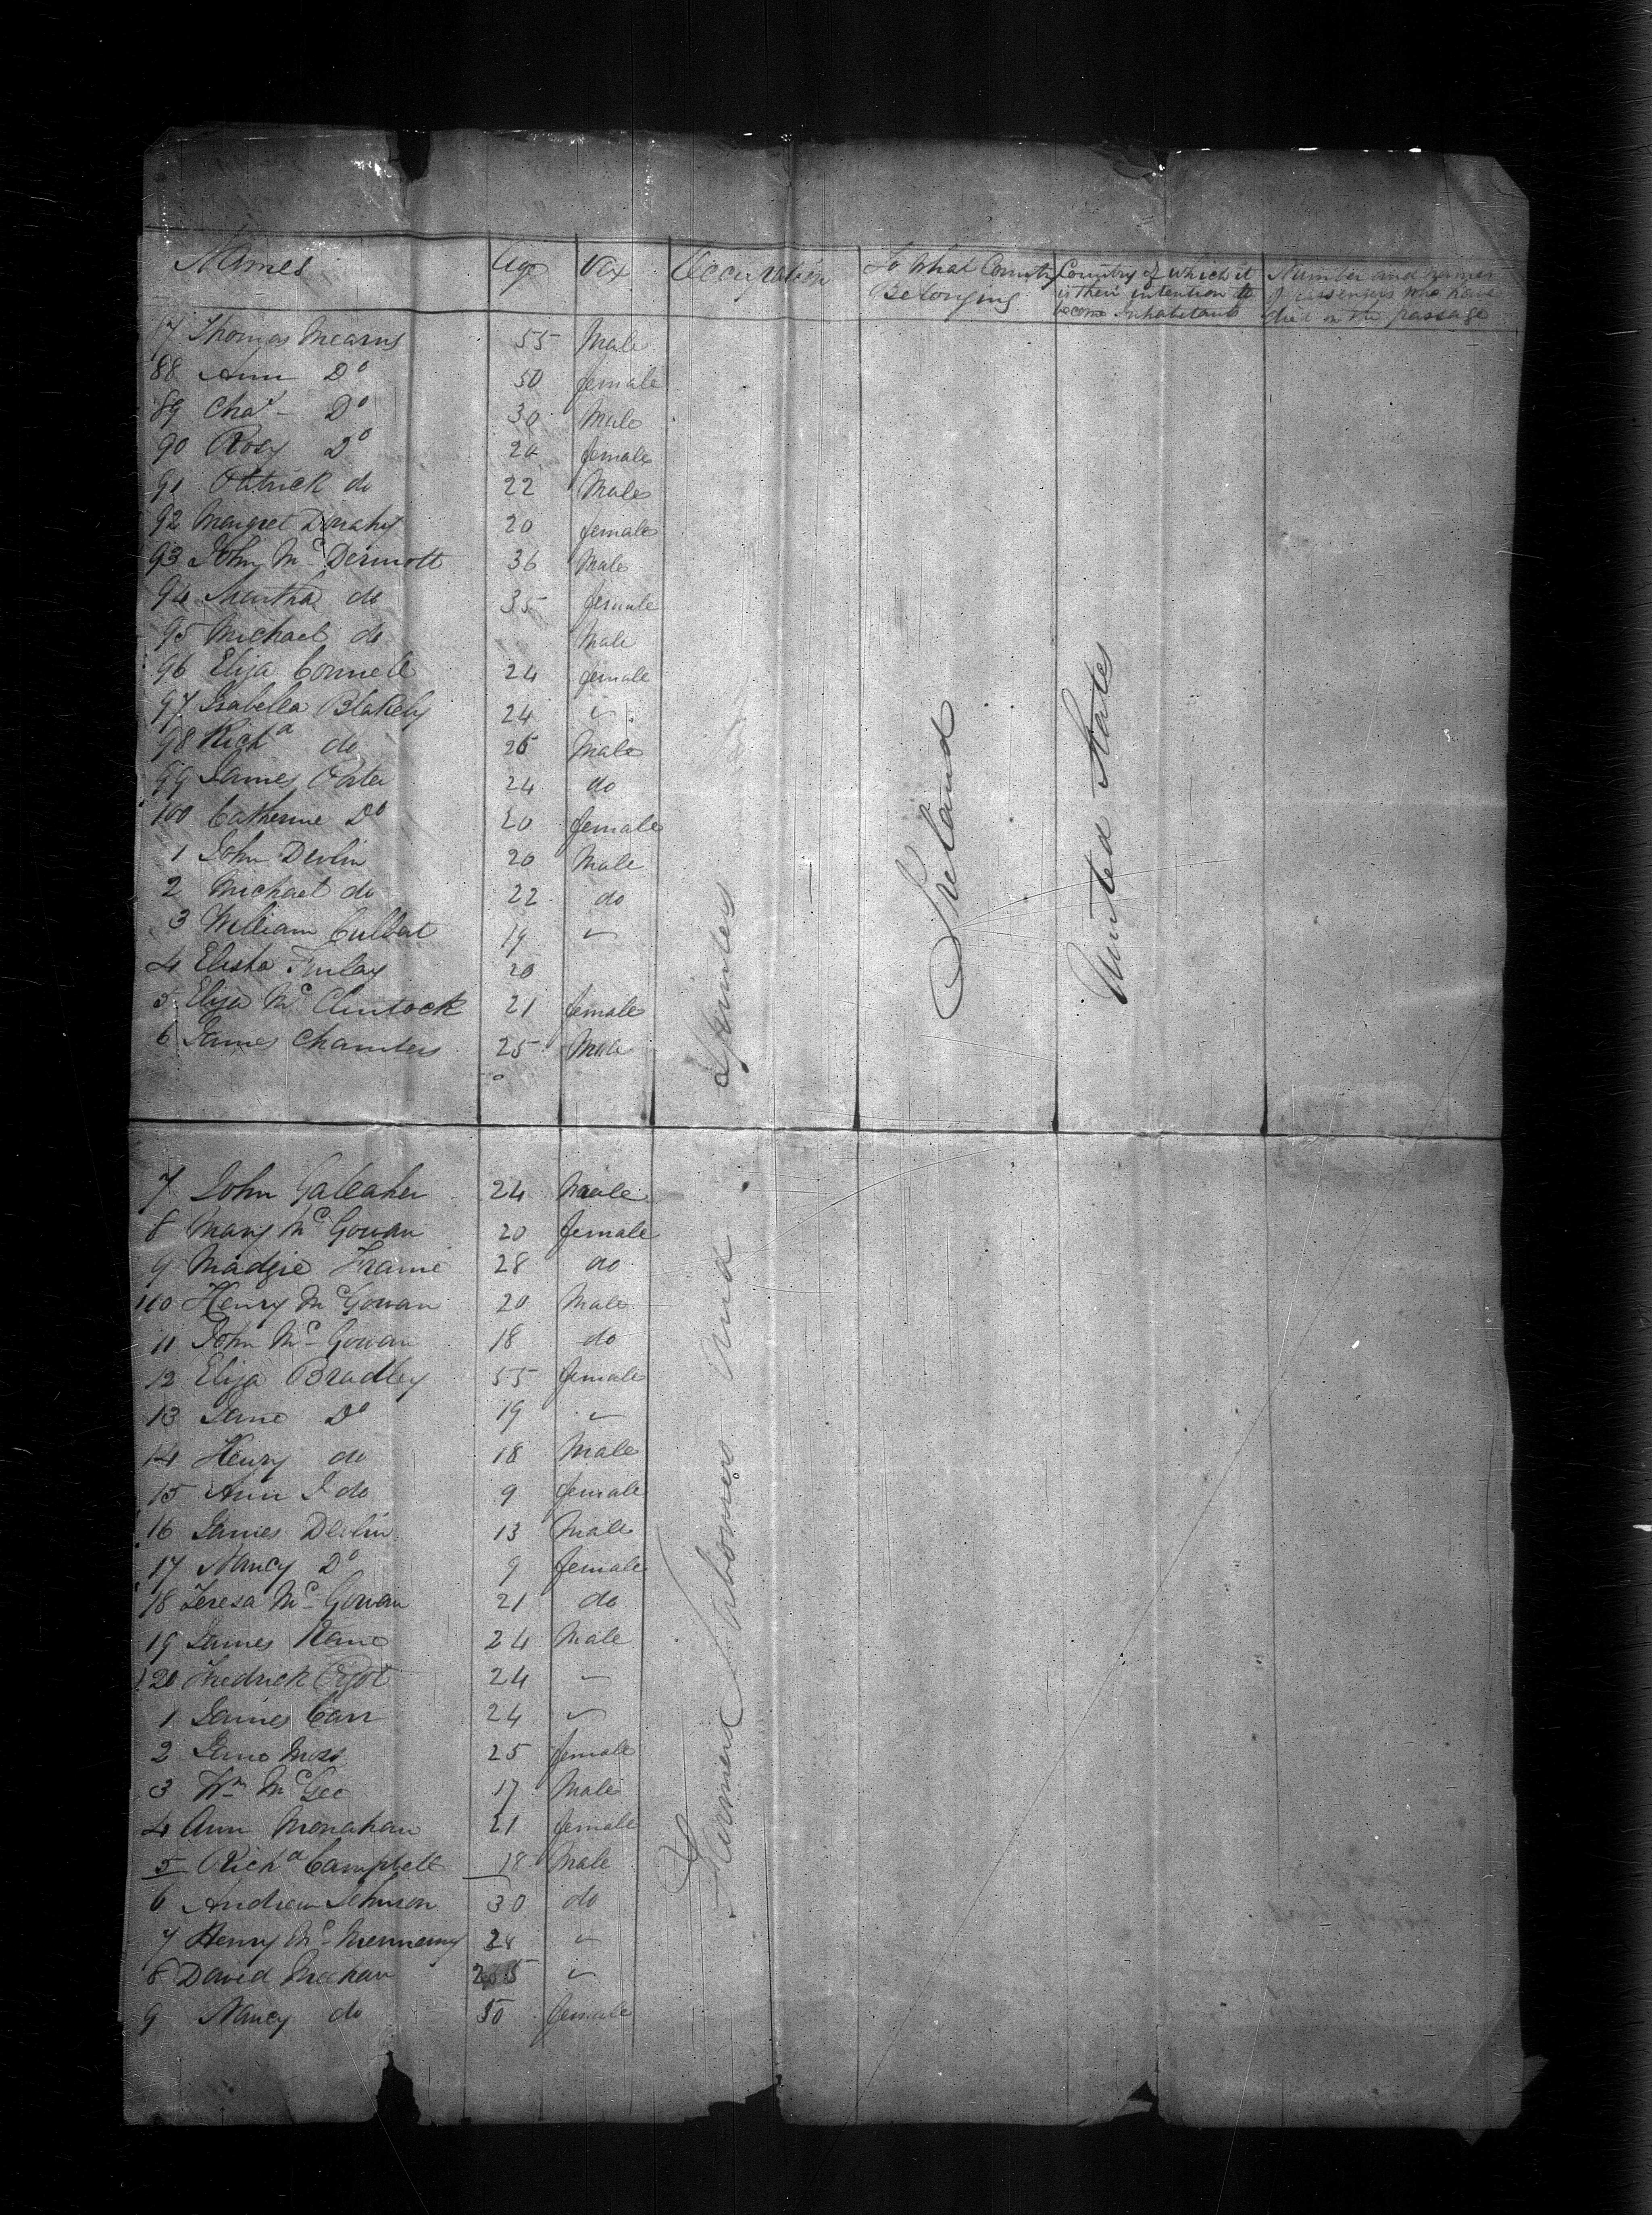 Names Age Sex Occupation To What Country Belonging Country of which it is their intention to become Inhabitants Number and names of passengers who have died on the passage
7 Thomas Mearns 55 Male
88 Ann Do 50 female
89 Chas Do 30 Male
90 Rosy Do 20 female
91 Patrick do 22 Male
92 Margret 20 female
93 John Mc Dermott 36 Male
94 Martha do 35 female
95 Michael do Male
96 Eliza Connell 24 female
97 Isabella Blakely 24 "
98 Richd do 26 Male
99 James 24 do
100 Catherine Do 20 female
1 John Devlin 20 Male
2 Michael do 22 do
3 William Culbert 19 "
4 Elisha Finlay 20
5 Eliza Mc Clintock 21 female
6 James Chambers 25 Male
7 John Galeaher 24 Male
8 Mary Mc Gowan 20 female
9 Madgie Frame 28 do
110 Henry Mc Gowan 20 Male
11 John Mc Gowan 18 do
12 Eliza Bradley 55 female
13 Jane Do 19 "
14 Henry do 18 Male
15 Ann J do 9 female
16 James Devlin 13 Male
17 Nancy Do 9 female
18 Teresa Mc Gowan 21 do
19 James Kane 24 Male
120 Fredrick 24 "
1 James Carr 24 "
2 Jane Moss 25 female
3 Wm Mc Gee 17 Male
4 Ann Monahan 21 female
5 Richd Campbell 18 Male
6 Andrew Johnson 30 do
7 Henry Mc Menamy 24 "
8 David Meehan "
9 Nancy do 50 female
Farmers Labourers and Spinsters
Ireland
United States